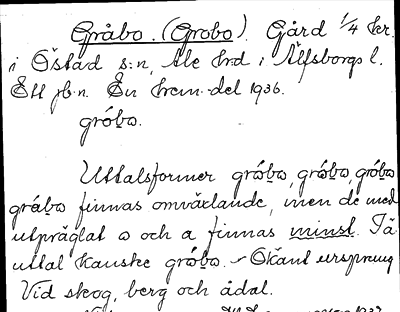 Gråbo. (Grobo). Gård 1/4 kr.
i Östad s:n, Ale hrd i Älfsborgs l.
Ett jb.n. En hem.del 1936.
gróbɷ.
Uttalsformer gróbɷ, gróbɷ, góbɷ
grábɷ finnas omväxlande, men de med
utpräglat o och a finnas minst. Så
uttal kanske gróbɷ. - Okänt ursprung
Vid skog, berg och ådal.